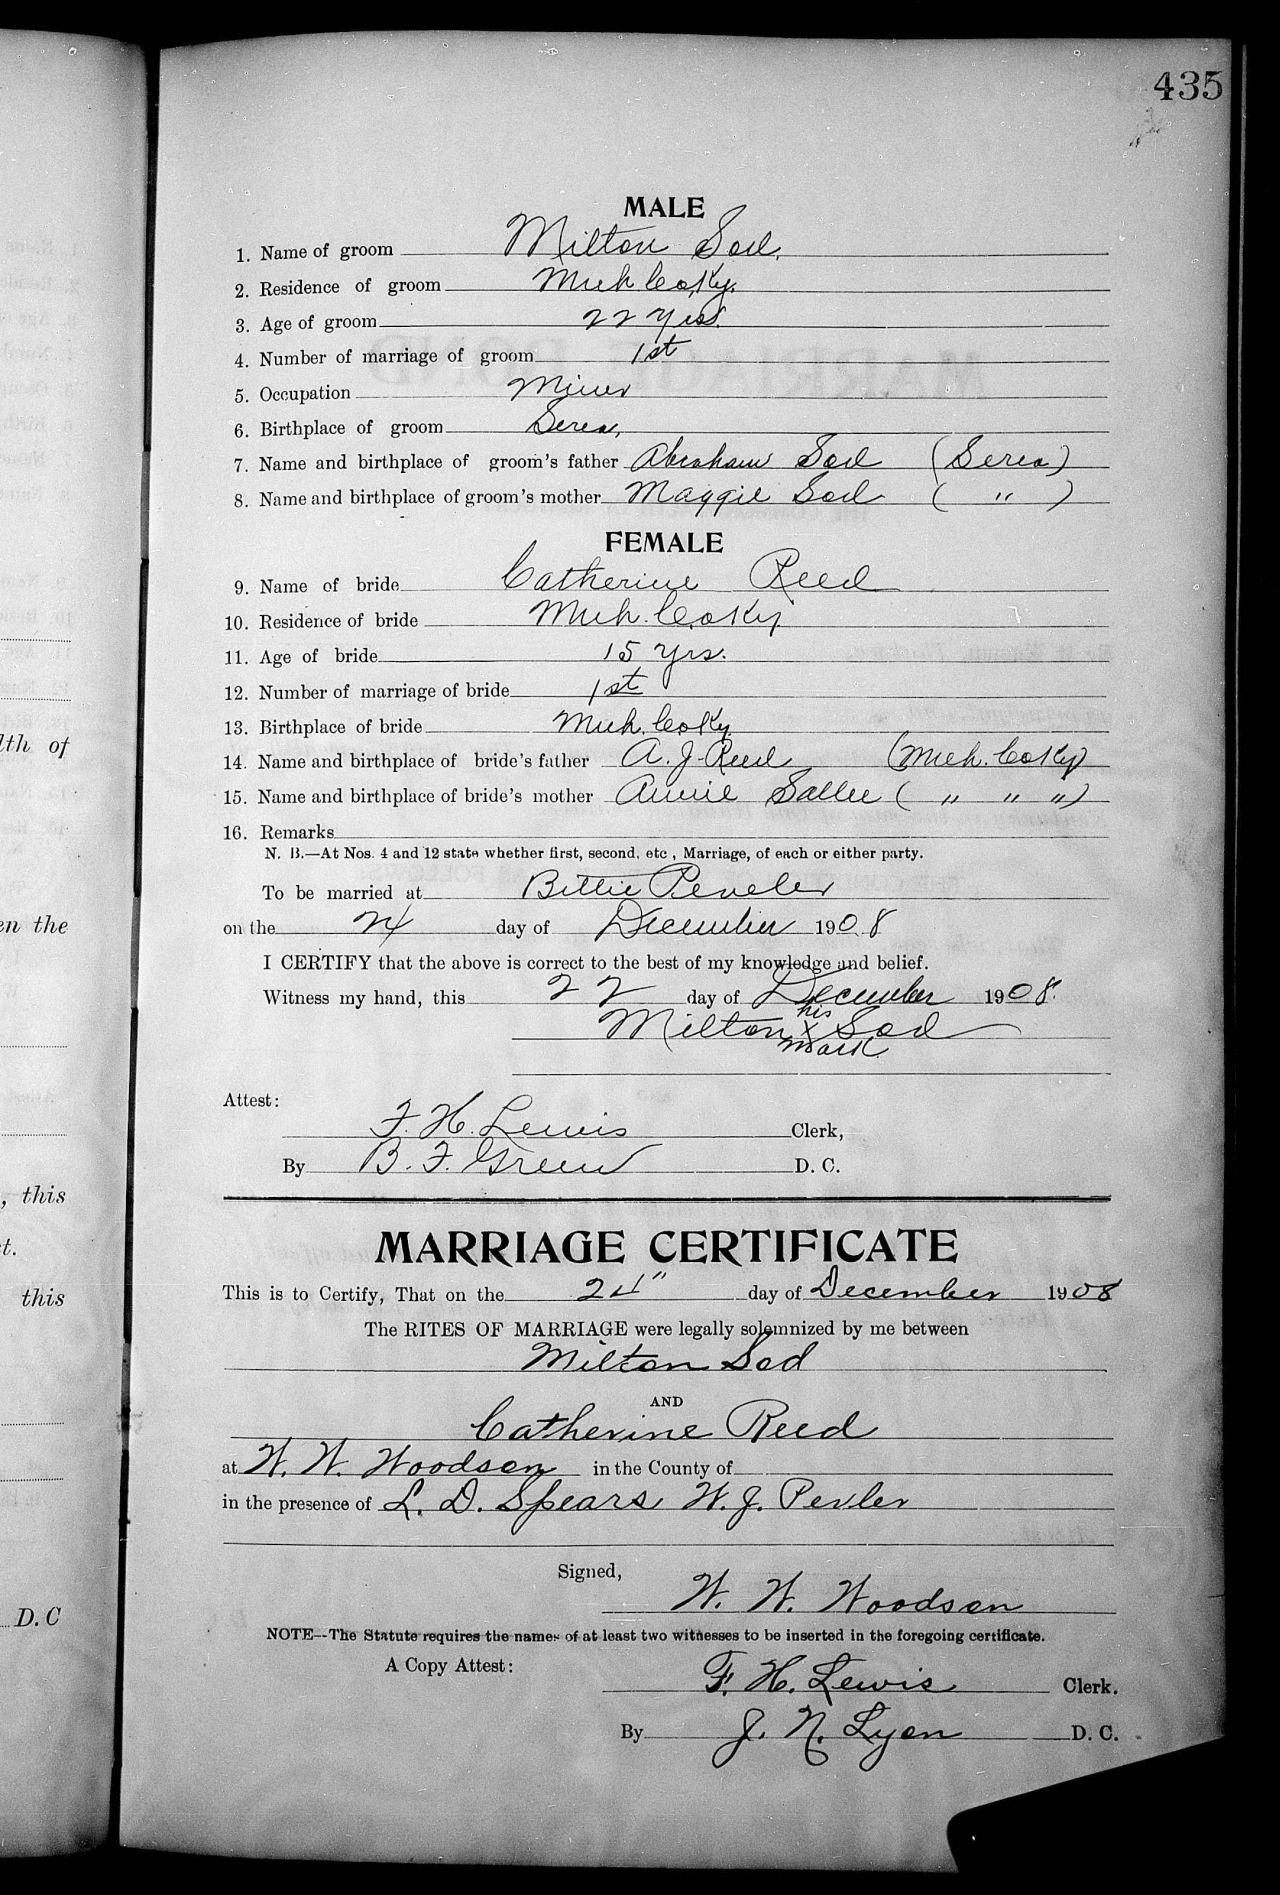 435
MALE
1. Name of groom Milton Sad.
2. Residence of groom Muh Co, Ky.
3. Age of groom 22 yrs.
4. Number of marriage of groom 1st
5. Occupation Miner
6. Birthplace of groom Serea,
7. Name and birthplace of groom's father Abraham Sad (Serea)
8. Name and birthplace of groom's mother Maggie Sad ( " )
FEMALE
9. Name of bride Catherine Reed
10. Residence of bride Muh. Co Ky
11. Age of bride 15 yrs.
12. Number of marriage of bride 1st
13. Birthplace of bride Muh. Co Ky
14. Name and birthplace of bride's father A. J. Reed (Muh. Co Ky)
15. Name and birthplace of bride's mother Annie Sallee ( " " ")
16. Remarks
N. B.—At Nos. 4 and 12 state whether first, second, etc , Marriage, of each or either party.
To be married at Bettie Peveler
on the 24 day of December 1908
I CERTIFY that the above is correct to the best of my knowledge and belief.
Witness my hand, this 22 day of December 1908.
his
Milton X Sad
mark
Attest:
F. H. Lewis Clerk,
By B. F. Green D. C.
MARRIAGE CERTIFICATE
This is to Certify, That on the 24" day of December 1908
The RITES OF MARRIAGE were legally solemnized by me between
Milton Sad
AND
Catherine Reed
at W. W. Woodson in the County of
in the presence of L. D. Spears W. J. Pevler
Signed,
W. W. Woodson
NOTE--The Statute requires the names of at least two witnesses to be inserted in the foregoing certificate.
A Copy Attest:
F. H. Lewis Clerk.
By J. N. Lyon D. C.
lth of
en the
, this
t.
this
D. C